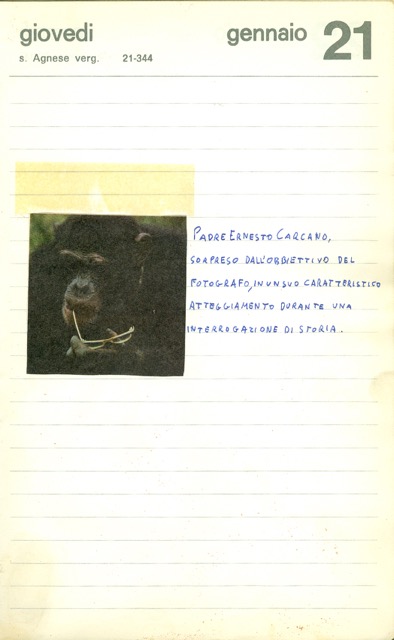 giovedì gennaio 21
s. Agnese verg. 21-344
PADRE ERNESTO CARCANO,
SORPRESO DALL'OBBIETTIVO DEL
FOTOGRAFO, IN UN SUO CARATTERISTICO
ATTEGGIAMENTO DURANTE UNA
INTERROGAZIONE DI STORIA.